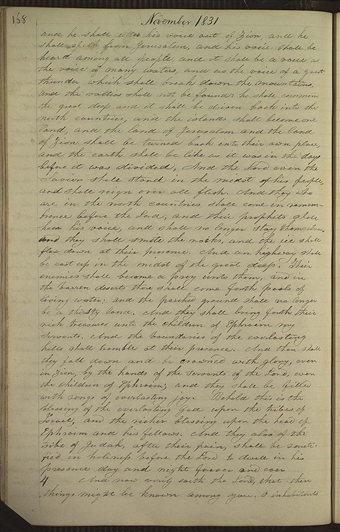 158
November 1831
and he shall utter his voice out of Zion, and he
shall speak from Jerusalem, and his voice shall be
heard among all people, and it shall be a voice as
the voice of many waters, and as the voice of a great
thunder which shall break down the mountains,
and the vallies shall not be found: he shall command
the great deep and it shall be driven back into the
north countries, and the islands shall become one
land, and the land of Jerusalem and the land
of Zion shall be turned back into their own place,
and the earth shall be like as it was in the days
before it was divided. And the Lord even the
Saviour shall stand in the midst of his people,
and shall reign over all flesh. And they who
are in the north countries shall come in remem-
brance before the Lord, and their prophets shall
hear his voice, and shall no longer stay themselves,
and they shall smite the rocks, and the ice shall
flow down at their presence. And an highway shall
be cast up in the midst of the great deep. Their
enemies shall become a prey unto them, and in
the barren deserts there shall come forth pools of
living water: and the parched ground shall no longer
be a thirsty land. And they shall bring forth their
rich treasures unto the children of Ephraim my
servants. And the boundaries of the everlasting
hills shall tremble at their presence. And then shall
they fall down and be crowned with glory, even
in Zion, by the hands of the servants of the Lord, even
the children of Ephraim; and they shall be filled
with songs of everlasting joy. Behold this is the
blessing of the everlasting God upon the tribes of
Israel, and the richer blessing upon the head of
Ephraim and his fellows. And they also of the
tribe of Judah, after their pain, shall be sancti-
fied in holiness before the Lord to dwell in his
presence day and night forever and ever
4 And now verily saith the Lord, that these
things might be known among you, O inhabitants